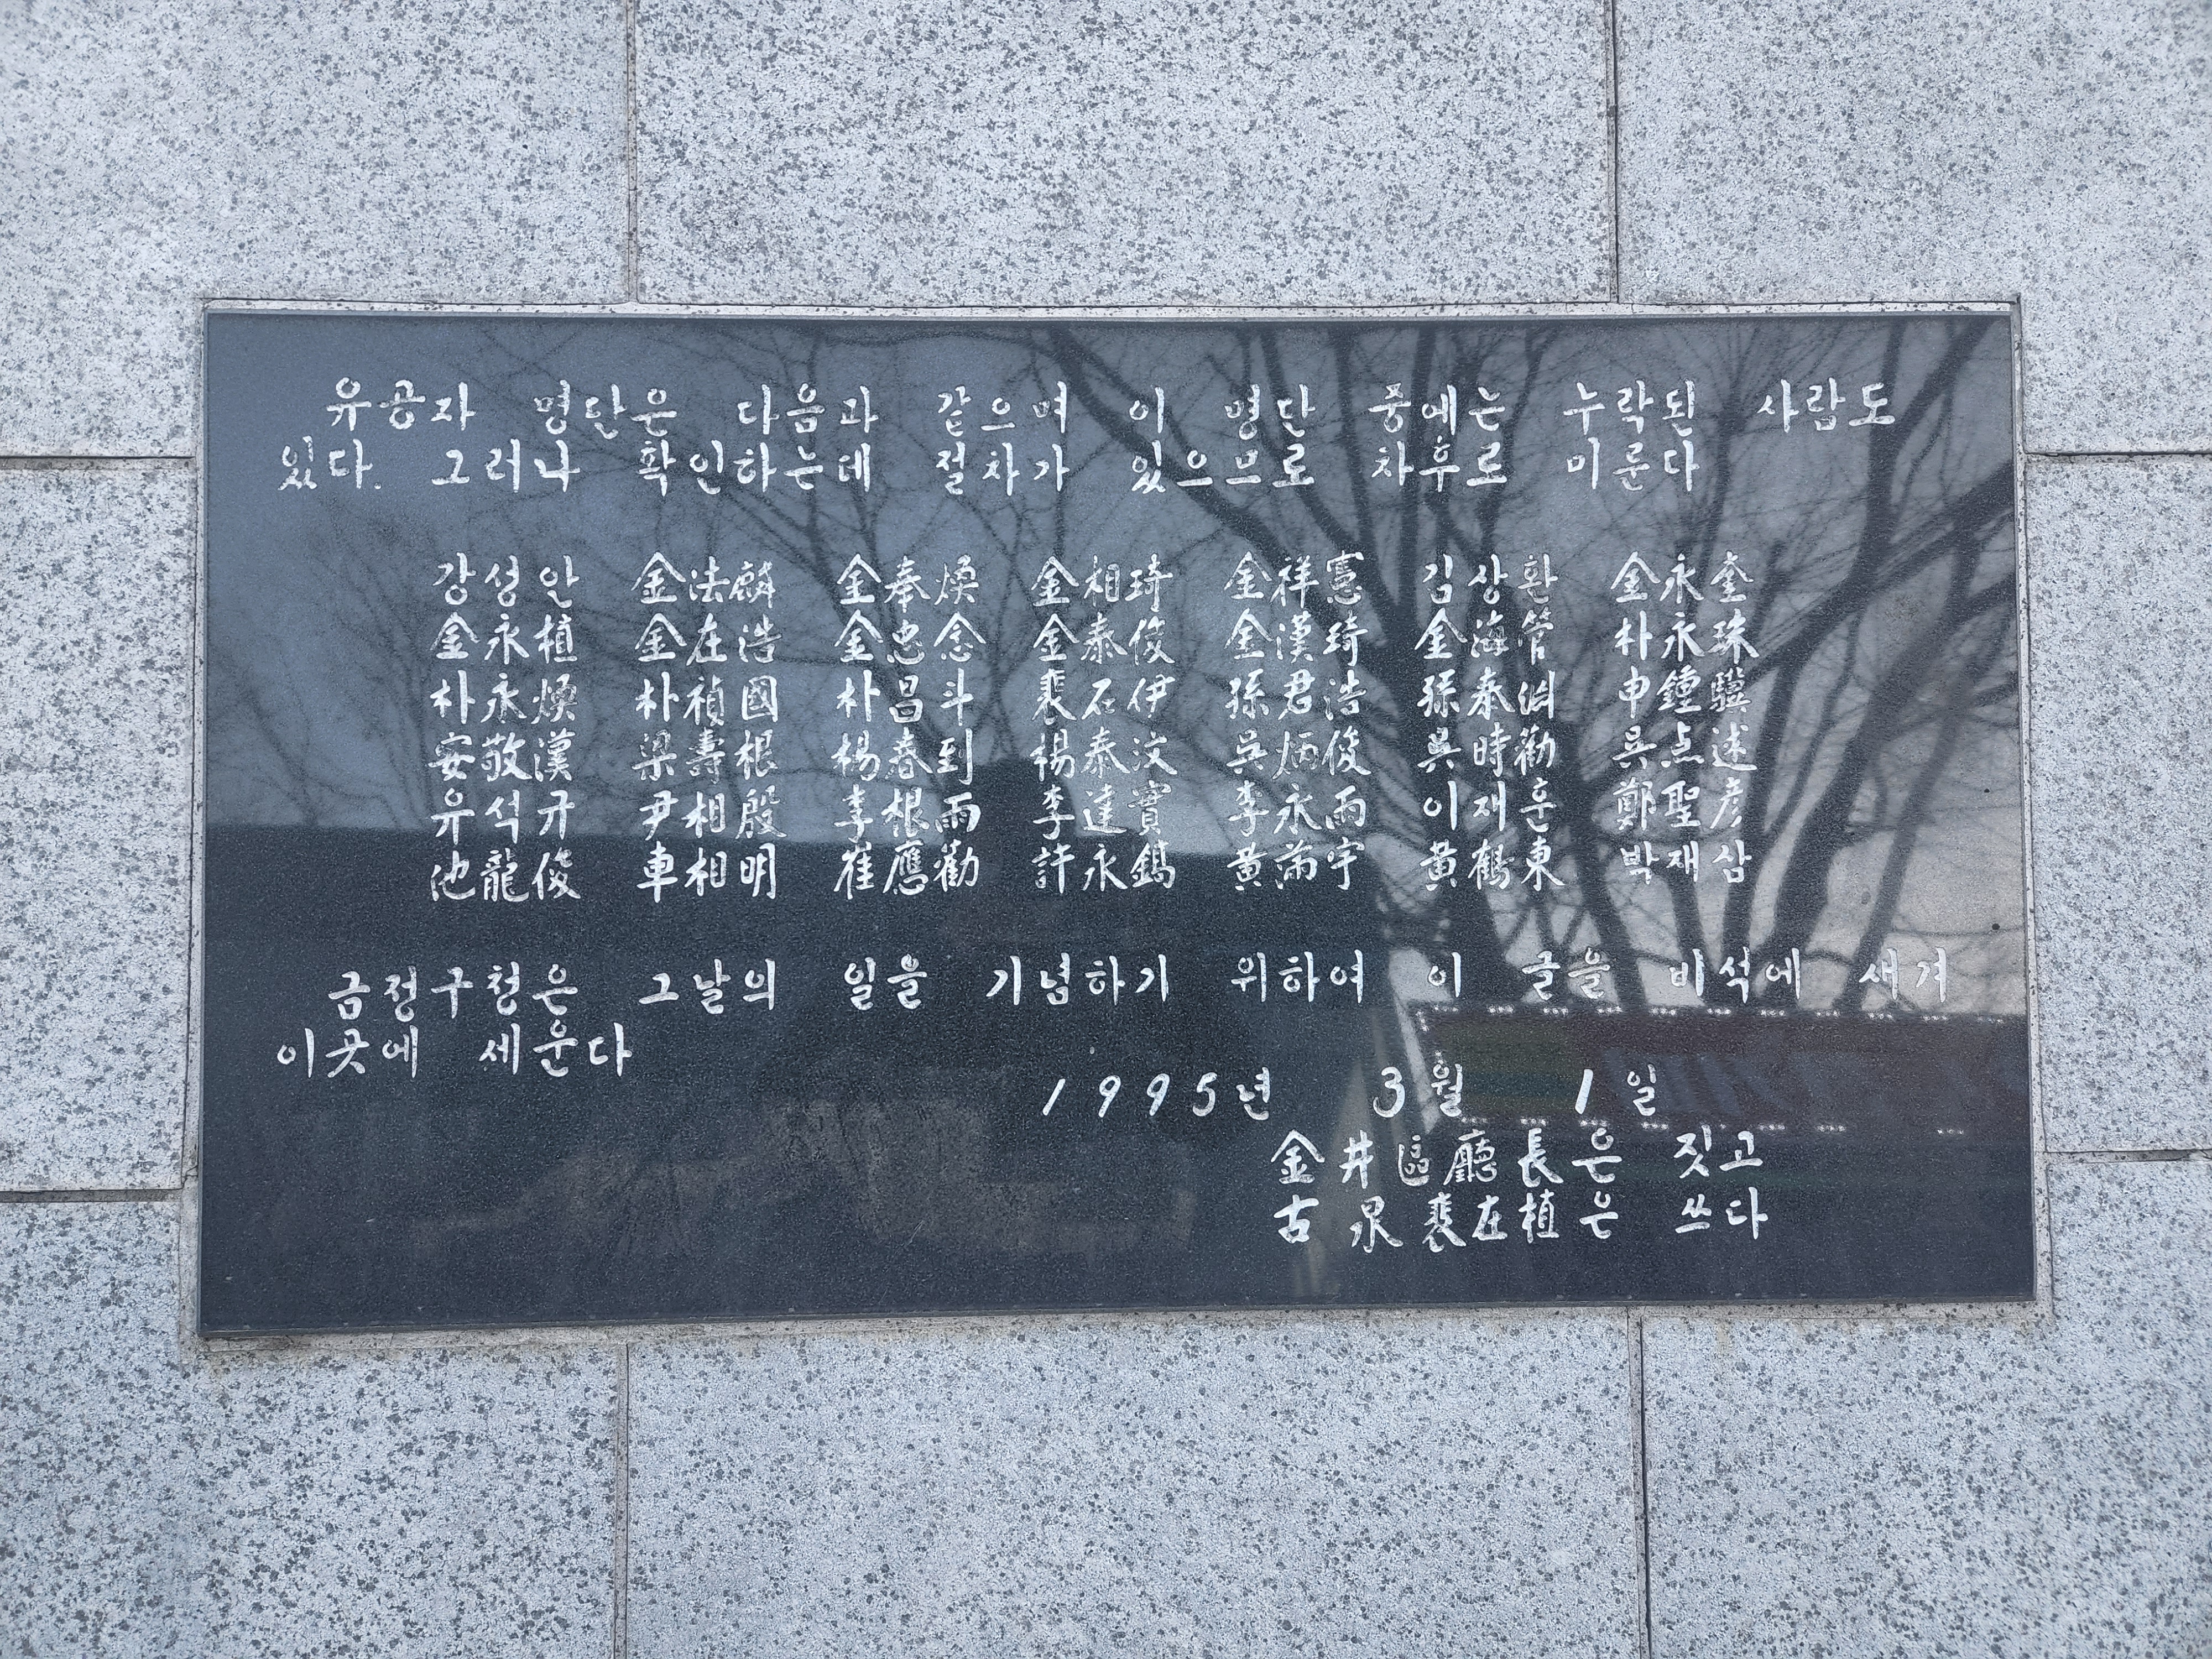 유공자 명단은 다음과 같으며 이 명단 중에는 누락된 사람도
있다. 그러나 확인하는데 절차가 있으므로 차후로 미룬다
강성안 金法麟 金奉煥 金相琦 金祥憲 김상환 金永奎
金永植 金在浩 金忠念 金泰俊 金漢琦 金海管 朴永珠
朴永煥 朴禎國 朴昌斗 裵石伊 孫君浩 孫泰淵 申鍾驥
安敬漢 梁壽根 楊春到 楊泰汶 吳炳俊 吳時勸 吳点述
유석규 尹相殷 李根雨 李達實 李永雨 이재훈 鄭聖彦
池龍俊 車相明 崔應勸 許永鎬 黃滿宇 黃鶴東 박재삼
금정구청은 그날의 일을 기념하기 위하여 이 글을 비석에 새겨
이곳에 세운다
1995년 3월 1일
金井區廳長은 짓고
古泉裵在植은 쓰다